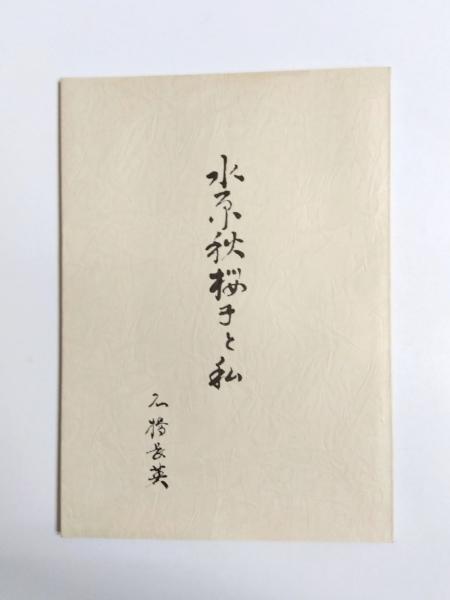 水原秋桜子と私
石橋長英